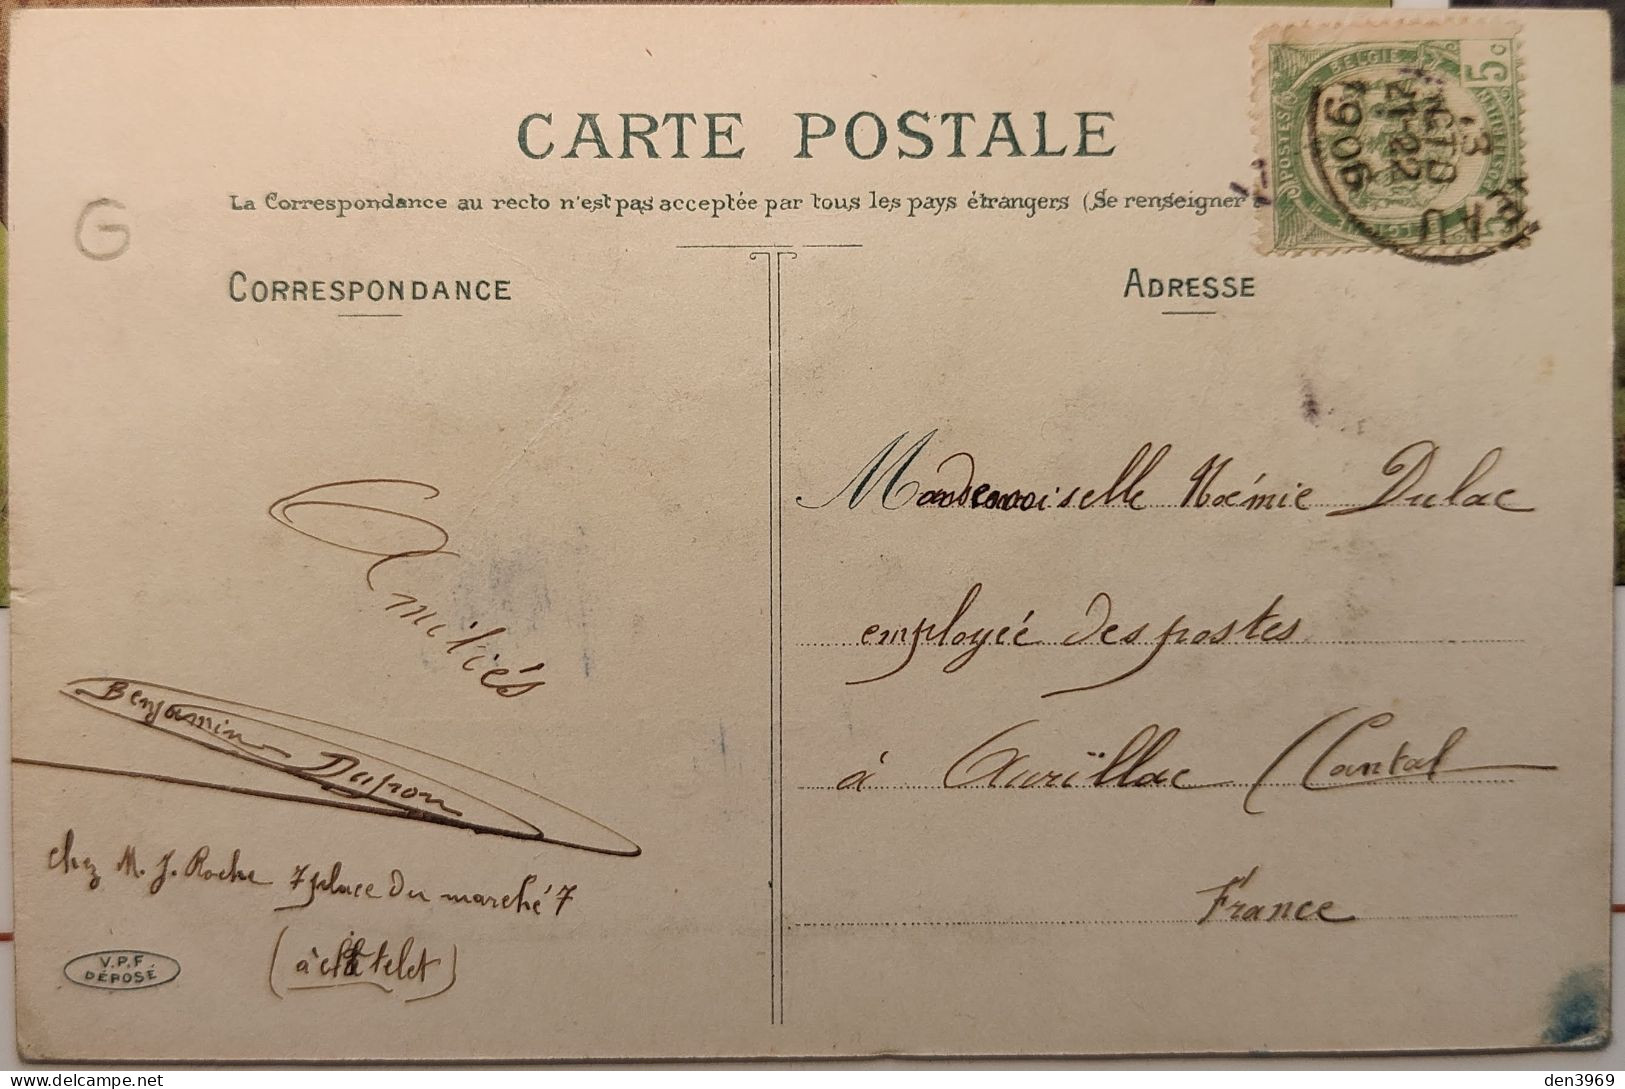 CARTE POSTALE
La Correspondance au recto n'est pas acceptée par tous les pays étrangers (Se renseigner
CORRESPONDANCE
ADRESSE
5c
BELGIE
POSTES
13
OCTO
21-22
1906
G
Amitiés
Benjamin Dupron
chez M. J. Roche 7 place du marché 7
(à châtelet)
V.P.F
DÉPOSÉ
Mademoiselle Noémie Dulac
employée des postes
à Aurillac (Cantal
France
den3969